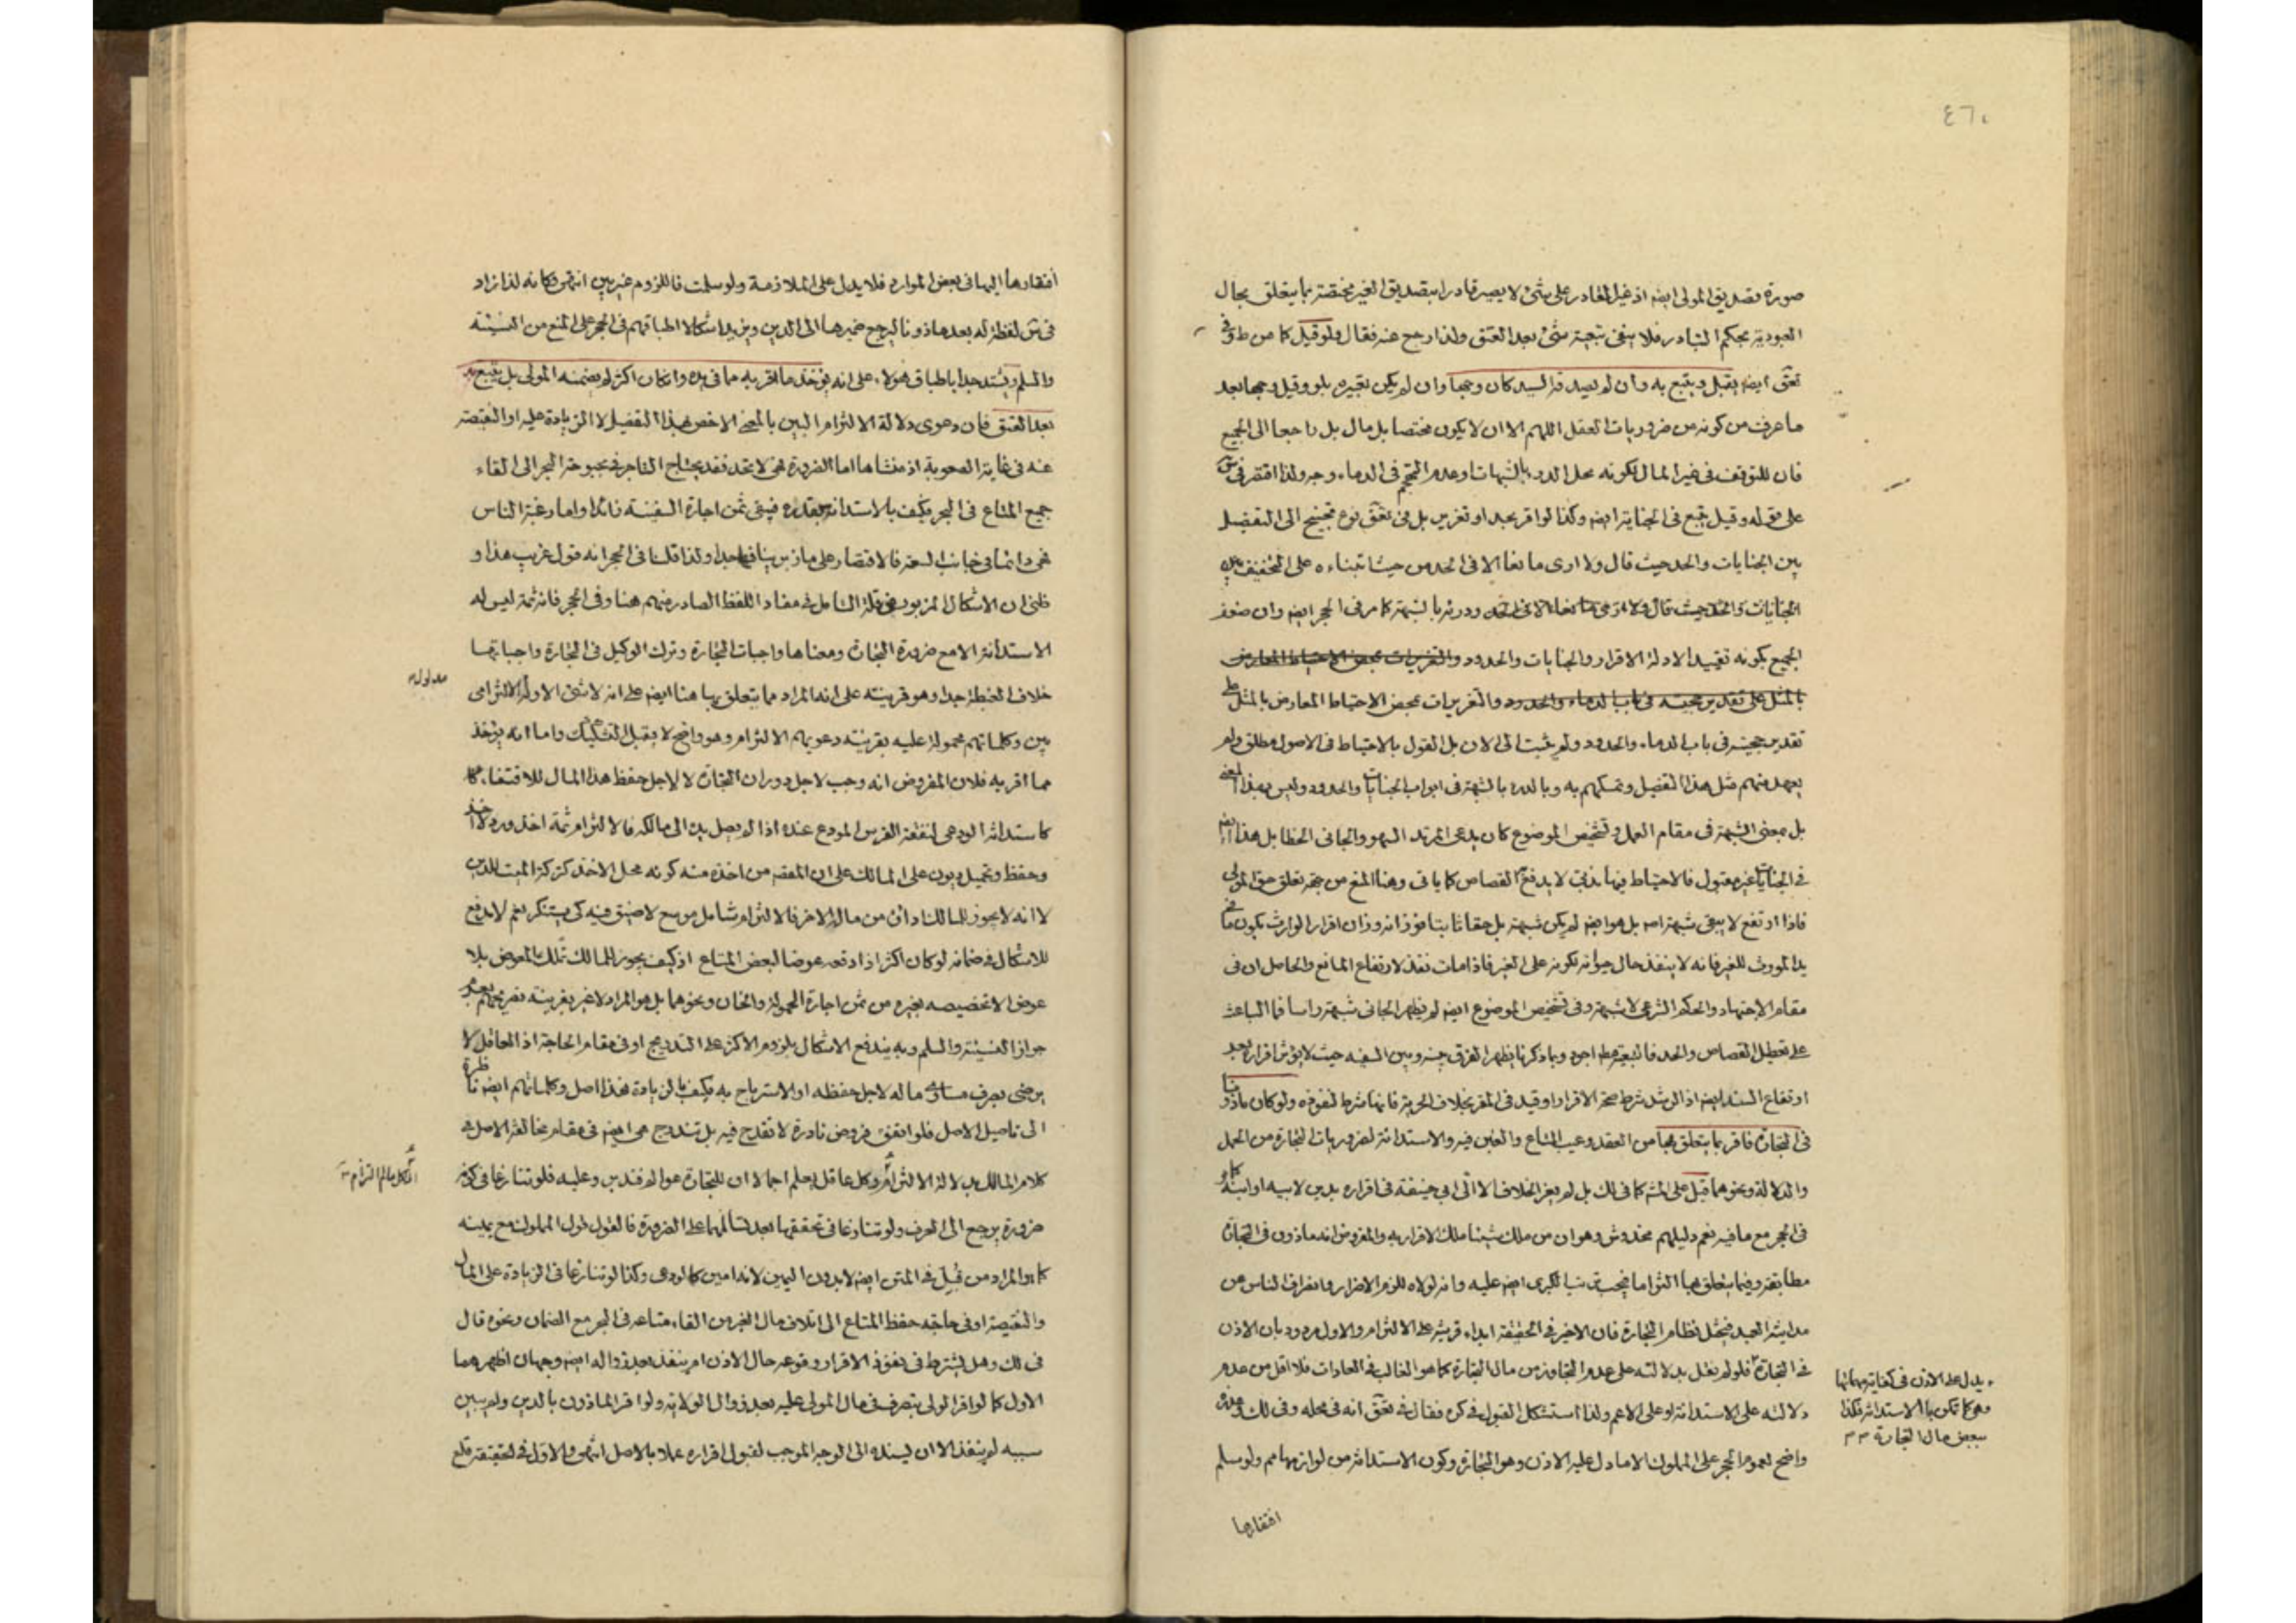 ٤٦٠
صورة تصديق المولى ايضا اذ غير القادر على شئ لا يصير قادرا بتصديق الغير مختصة بما يتعلق بحال
العبودية بحكم التبادر فلا ينفى تبعية شئ بعد العتق ولذا رجع عنه فقال ولو قيل كما من ط وفى
تعق ايضا يقبل ويتبع به وان لم يصدقه السيد كان وجها وان لم يكن بغيره بل وقيل وجها بعد
ما عرفت من كونه من ضروريات العقل اللهم الا ان لا يكون مختصا بل مال بل راجعا الى الجميع
فان للتوقف فى غير المال لكونه محل الدرء بالشبهات وعدم التهجم فى الدماء وجه ولذا اقتصر فى
على قوله وقيل يتبع فى الجناية ايضا وكذا لو اقر بحد او تعزير بل فى تعق نوع تجنيح الى التفصيل
بين الجنايات والحد حيث قال ولا ارى مانعا الا فى الحد من حيث ابتناءه على التخفيف
الجنايات والحد حيث قال ولا ارى مانعا الا فى الحد ودرئه بالشبهة كما مر فى الحجر ايضا وان ضعف
الجميع بكونه تقييد الادلة الاقرار والجنايات والحدود والتعزيرات بمحض الاحتياط المعارض
بالمثل على تقدير حجيته فى باب الدماء والحدود والتعزيرات بمحض الاحتياط المعارض بالمثل على
تقدير حجيته فى باب الدماء والحدود ولم يثبت الى الان بل القول بالاحتياط فى الاصول مطلق ولم
يعهد منهم مثل هذا التفصيل وتمسكهم به وبالدرء بالشبهة فى ابواب الجنايات والحدود وليس بهذا المعنى
بل بمعنى الشبهة فى مقام العمل وتشخيص الموضوع كان يدعى المرتد السهو والجانى الخطا بل هذا ايضا
فى الجنايات غير مقبول فالاحتياط فيها بدئى لا يدفع القصاص كما ياتى وهنا المنع من جهة تعلق حق المولى
فاذا ارتفع لا يبقى شبهة اصلا بل هو ايضا لم يكن شبهة بل حقا ثابتا فوزانه وزان اقرار الوارث بكون ما فى
يد المورث للغير فانه لا ينفذ حال حيوته لكونه على الغير فاذا مات نفذ لارتفاع المانع والحاصل ان فى
مقام الاجتهاد والحكم الشرعى لا شبهة وفى تشخيص الموضوع ايضا لم يظهر الجانى شبهة راسا فما الباعث
على تعطيل القصاص والحد فالتبعية مط اجود وبما ذكرنا يظهر الفرق بينه وبين السفيه حيث لا يؤثر اقراره بعد
ارتفاع السفه ايضا اذ الرشد شرط صحة الاقرار او قيد فى المقر بخلاف الحرية فانها شرط لنفوذه ولو كان ماذونا
فى التجارة فاقر بما يتعلق بها من العقد وعيب المتاع والغبن فيه والاستدانة لضروريات التجارة من الحمل
والدلالة ونحوهما قبل على المشهور كما فى لك بل لم يعز الخلاف الا الى ابى حنيفة فى اقراره بدين لابيه او ابنه كما
فى الحجر مع ما فيه نعم دليلهم مخدوش وهو ان من ملك شيئا ملك الاقرار به والمفروض انه ماذون فى التجارة
مطابقة وفيما يتعلق بها التزاما فيجب تنبا لكبرى ايضا عليه وانه لولاه للزم الاضرار وانصراف الناس عن
مداينة العبد فيختل نظام التجارة فان الاخير فى الحقيقة ابداء قرينة على الالتزام والاول مردود بان الاذن
فى التجارة فلو لم يقل بدلالته على عدم التجاوز من مال التجارة كما هو الغالب فى العادات فلا اقل من عدم
دلالته على الاستدانة او على الاعم ولذا استشكل القبول فى كره فقال فى تعق انه فى محله وفى لك وعذره
واضح لعموم الحجر على المملوك الا ما دل عليه الاذن وهو التجارة وكون الاستدانة من لوازمها مم ولو سلم
يدل على الاذن فى كفاية مهماتها
وهو كما تمكن بالاستدانة فكذا
ببعض مال التجارة
افتقارها
افتقارها اليها فى بعض الموارد فلا يدل على الملازمة ولو سلمت فاللزوم غير بين انتهى وكانه لذا زاد
فى ش لفظة له بعد ماذونا ليرجع ضميرها الى الدين ويزيد اشكالا اطباقهم فى الحجر على المنع من النسيئة
والسلم ويشتد جدا باطباق هؤلاء على انه يؤخذ ما اقر به مما فى يده وان كان اكثر لم يضمنه المولى بل يتبع به
بعد العتق فان دعوى دلالة الالتزام البين بالمعنى الاخص بهذا التفصيل لا الزيادة عليه او النقيصة
عنه فى غاية الصعوبة اذ منشاها اما الضرورة فهى لا تحد فقد يحتاج التاجر فى بحبوحة البحر الى القاء
جميع المتاع فى البحر فكيف بالاستدانة بقدره فيبقى ثمن اجارة السفينة زائدا واما رغبة الناس
فهى دائما فى جانب السعة فالاقتصار على ما زبر ينافيها جدا ولذا قلنا فى الحجر انه قول غريب هذا و
ظنى ان الاشكال المزبور من قلة التامل فى مفاد اللفظ الصادر منهم هنا وفى الحجر فانه ثمة ليس له
الاستدانة الا مع ضرورة التجارة ومعناها واجبات التجارة وترك الوكيل فى التجارة واجباتها
خلاف الغبطة جدا وهو قرينة على انه المراد مما يتعلق بها هنا ايضا على انه لا شئ الا وله الالتزامى
مدلول
بين وكلماتهم محمولة عليه بقرينة دعويهم الالتزام وهو واضح لا يقبل التشكيك واما انه يؤخذ
مما اقر به فلان المفروض انه وجب لاجل دوران التجارة لا لاجل حفظ هذا المال للاقتناء كما
كاستدانة الودعى لنفقة الفرس المودع عنده اذا لم يصل يده الى مالكه فالالتزام ثمة اخذ ورد لا اخذ
وحفظ وتحميل ديون على المالك على ان المقصود من اخذه منه كونه محل الاخذ كتركة الميت للدين
لا انه لا يجوز للمالك اداؤه من ماله الاخر فالالتزام شامل موسع لا ضيق فيه كى يستنكر نعم لا يدفع
للاشكال فى ضمانه لو كان اكثر اذا دفعه عوضا لبعض المتاع اذ كيف يجوز للمالك تملك المعوض بلا
عوض الا تخصيصه بغيره من ثمن اجارة الحمولة والخان ونحوهما بل هو المراد لا غير بقرينة تصريحهم بعدم
جواز النسيئة والسلم وبه يندفع الاشكال بلزوم الاكثر على التدريج او فى مقام الحاجة اذ العاقل لا
يرضى بصرف مساوى ماله لاجل حفظه او الاسترباح به فكيف بالزيادة فهذا اصل وكلماتهم ايضا ناظرة
الى تاصيل الاصل فلو اتفق فروض نادرة لا تقدح فيه بل تندرج هى ايضا فى مقام مخالفة الاصل فى
كلام المالك بدلالة الالتزام وكل عاقل يعلم اجمالا ان للتجارة عوالم فتدبر وعليه فلو تنازعا فى كونه
ضرورة يرجع الى العرف ولو تنازعا فى تحققها بعد تسالمهما على الضرورة فالقول قول المملوك مع يمينه
كما هو المراد من قبل فى المتن ايضا لا بدون اليمين لانه امين كالودعى وكذا لو تنازعا فى الزيادة على المال
والنقيصة او فى حاجة حفظ المتاع الى اتلاف مال الغير من القاء متاعه فى البحر مع الضمان ونحوه قال
فى لك وهل يشترط فى نفوذ الاقرار وقوعه حال الاذن ام ينفذ بعد زواله ايضا وجهان اظهرهما
الاول كما لو اقر الولى بتصرف فى مال المولى عليه بعد زوال الولاية ولو اقر الماذون بالدين ولم يبين
سببه لم ينفذ الا ان يسنده الى الوجه الموجب لقبول اقراره عملا بالاصل انتهى والاول فى الحقيقة قلع